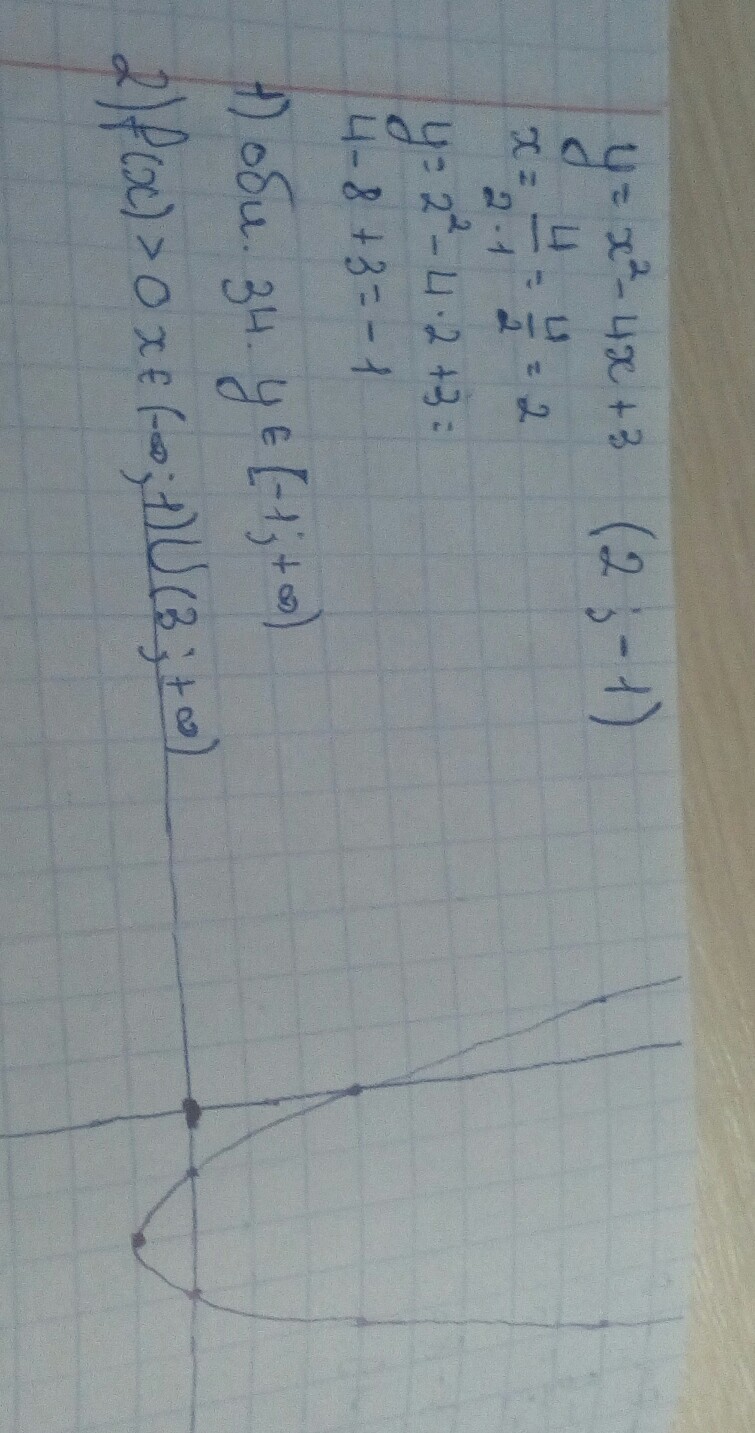 y = x² - 4x + 3 (2 ; -1)
x = 4/2·1 = 4/2 = 2
y = 2² - 4·2 + 3 =
4 - 8 + 3 = -1
1) обл. зн. y ∈ [-1; +∞)
2) f(x) > 0 x ∈ (-∞; 1) ∪ (3; +∞)